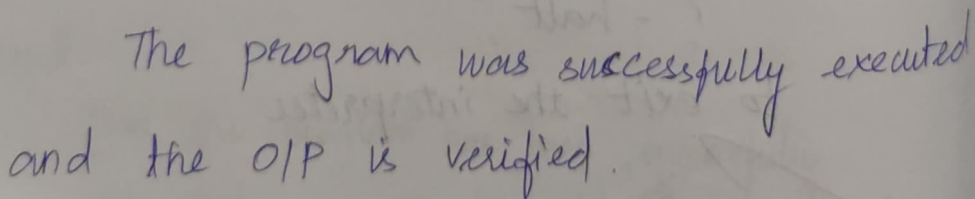 The program was successfully executed
and the O/P is verified.